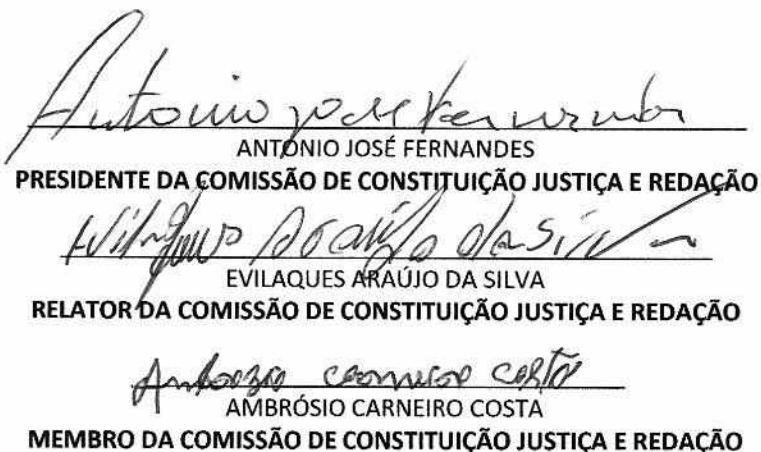 Antonio José Fernandes
ANTÓNIO JOSÉ FERNANDES
PRESIDENTE DA COMISSÃO DE CONSTITUIÇÃO JUSTIÇA E REDAÇÃO
Araújo da Silva
EVILAQUES ARAÚJO DA SILVA
RELATOR DA COMISSÃO DE CONSTITUIÇÃO JUSTIÇA E REDAÇÃO
Ambrozio Carneiro Costa
AMBRÓSIO CARNEIRO COSTA
MEMBRO DA COMISSÃO DE CONSTITUIÇÃO JUSTIÇA E REDAÇÃO